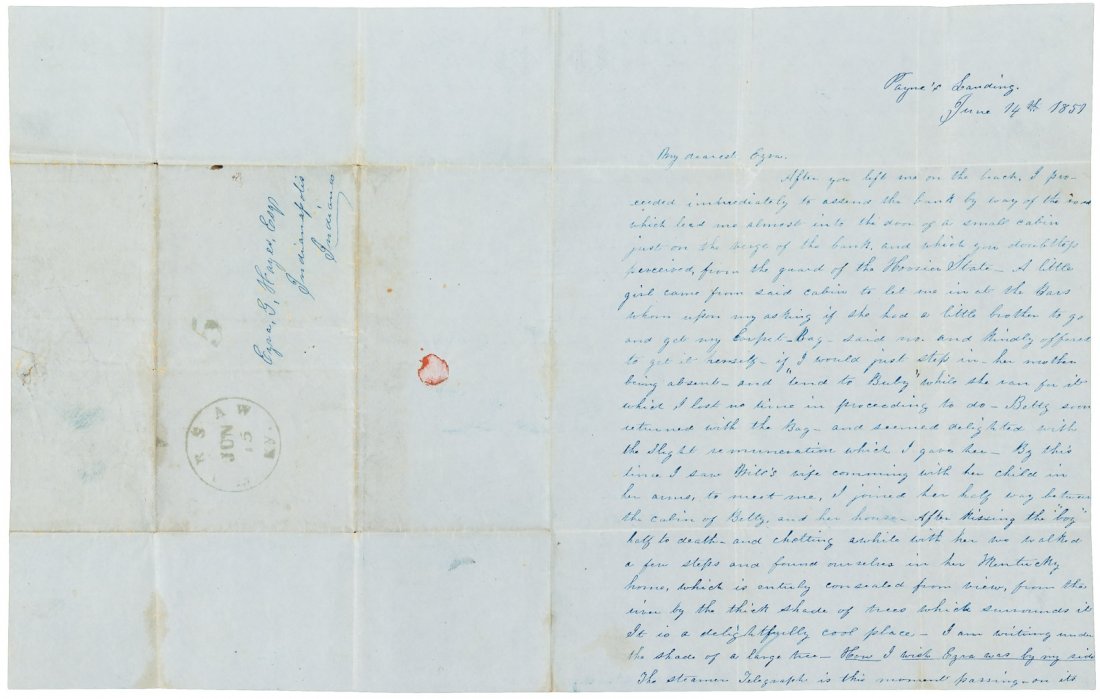 Payne's Landing.
June 14th 1851
My dearest Ezra.
After you left me on the beach, I pro-
ceeded immediately to assend the bank by way of the
which lead me almost into the door of a small cabin
just on the verge of the bank, and which you doubtless
perceived, from the guard of the Hoosier State - A little
girl came from said cabin to let me in at the Bars
whom upon my asking if she had a little brother to go
and get my Carpet-Bag - said no and kindly offered
to get it herself - if I would just step in - her mother
being absent - and "tend to Baby" while she ran for it
which I lost no time in proceeding to do - Betty soon
returned with the Bag - and seemed delighted with
the slight remuneration which I gave her - By this
time I saw Will's wife comming with her child in
her arms, to meet me, I joined her half way between
the cabin of Betty, and her house - After kissing the "boy"
half to death - and chatting awhile with her we walked
a few steps and found ourselves in her Kentucky
home, which is entirly consealed from view, from the
river by the thick shade of trees which surrounds it
It is a delightfully cool place - I am writing under
the shade of a large tree - How I wish Ezra was by my side
The steamer Telegraph is this moment passing - on its
Ezra, G, Hayes, Esqr
Indianapolis
Indiana
5
RSAW
KY.
JUN
15